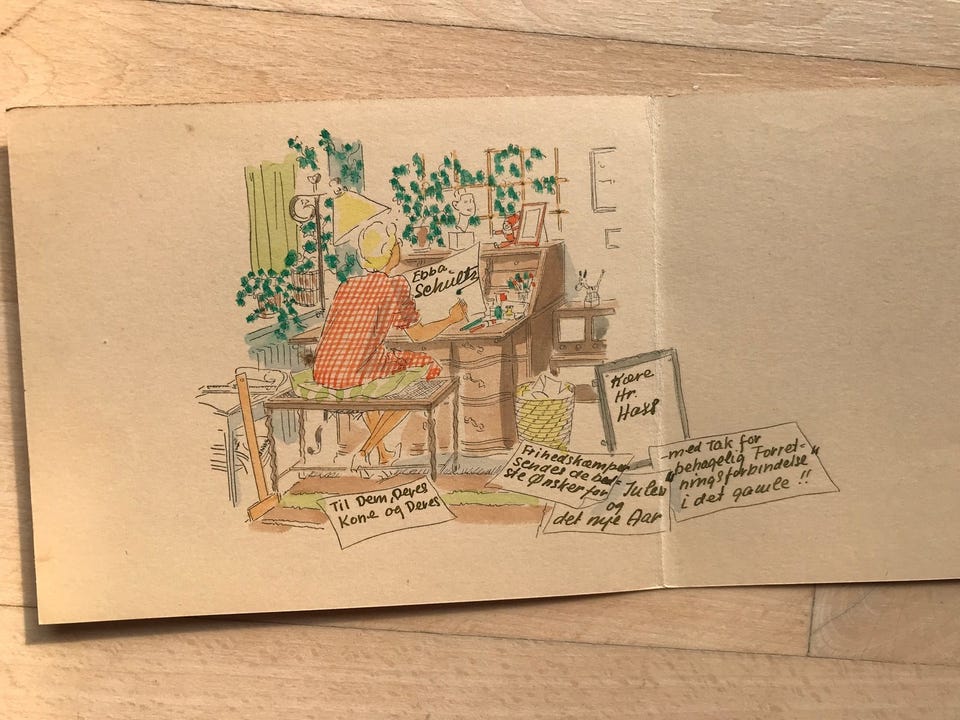 Ebba
Schultz
Kære
Hr.
Hass
Til Dem, Deres
Kone og Deres
Frihedskæmper
sendes de bed-
ste Ønsker for
Julen
og
det nye Aar
med Tak for
"behagelig Forret-
ningsforbindelse"
i det gamle !!